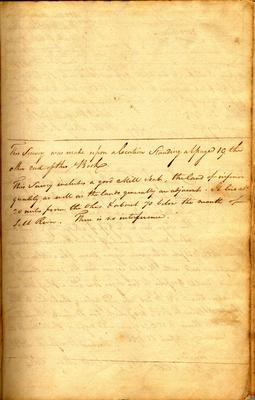 This Survey was made upon a location Standing at page 19 this
other end of this Book
This Survey includes a good Mill Seat, the land of inferior
quality as well as the lands generally in adjacent. It lies at
20 miles from the Ohio & about 70 below the mouth of
Salt River. There is no interference.